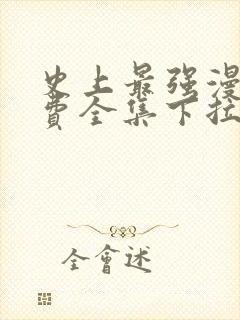 史上最强漫
费全集下拉
全會述